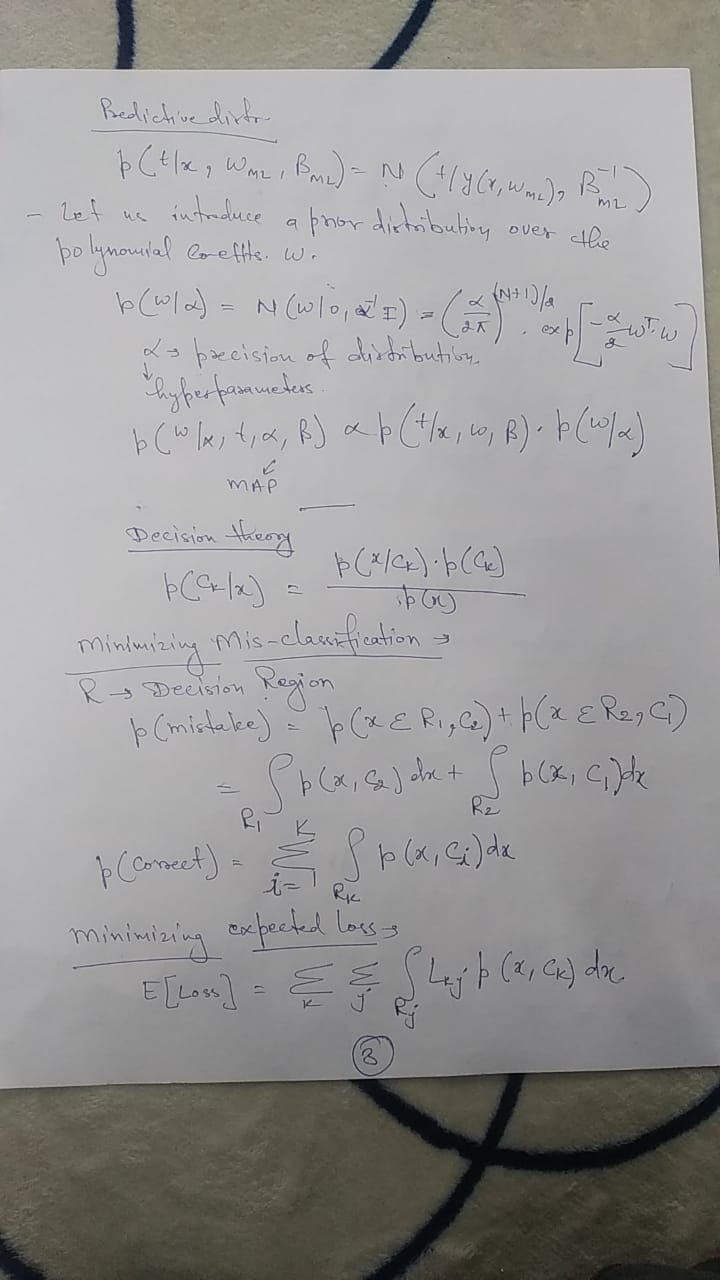 Predictive distr
p(t/x, w_ML, β_ML) = N(t/y(x, w_ML), β_ML^-1)
- Let us introduce a prior distribution over the
polynomial coeffts. w.
p(w/α) = N(w/0, α^-1 I) = (α/2π)^(N+1)/2 . exp[-α/2 w^T. w]
α → precision of distribution
↓
hyperparameters.
p(w/x, t, α, β) ∝ p(t/x, w, β) . p(w/α)
MAP
Decision theory
p(Ck/x) = p(x/Ck).p(Ck) / p(x)
Minimizing Mis-classification →
R → Decision Region
p(mistake) = p(x ∈ R1, C2) + p(x ∈ R2, C1)
= ∫_R1 p(x, C2) dx + ∫_R2 p(x, C1) dx
p(correct) = Σ_{i=1}^{K} ∫_Rk p(x, Ci) dx
Minimizing expected loss →
E[Loss] = Σ_k Σ_j ∫_Rj Lkj p(x, Ck) dx.
3